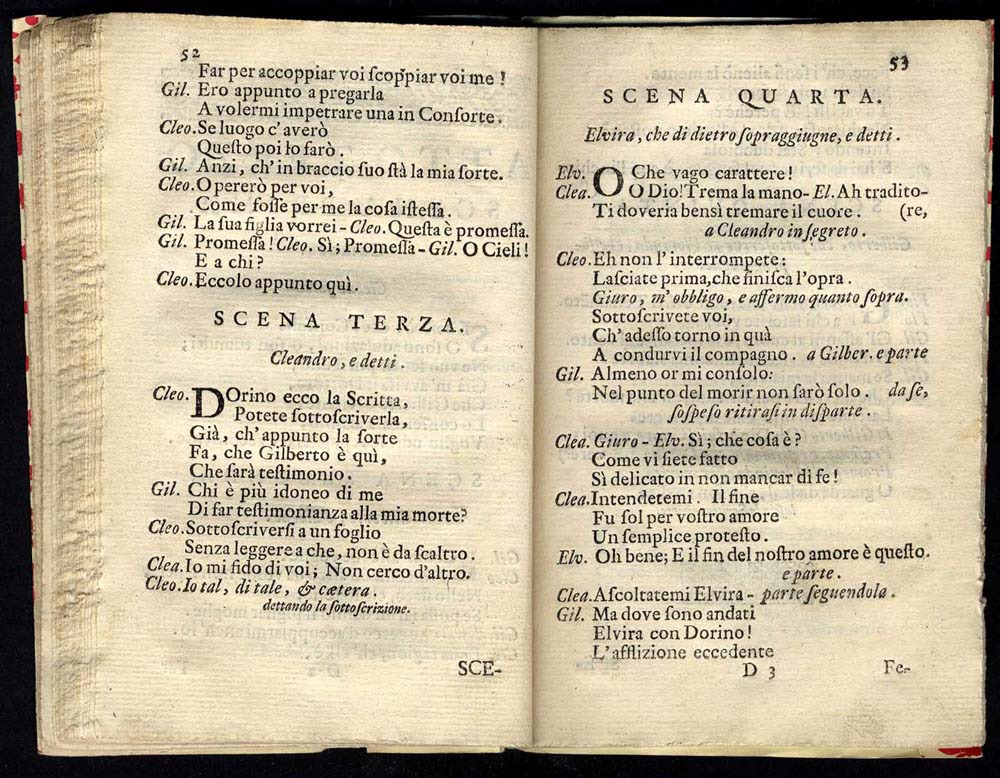 52
Far per accoppiar voi ſcoppiar voi me !
Gil. Ero appunto a pregarla
A volermi impetrare una in Conſorte.
Cleo. Se luogo c' averò
Queſto poi lo farò .
Gil. Anzi, ch' in braccio ſuo ſtà la mia ſorte.
Cleo. Opererò per voi,
Come foſſe per me la coſa iſteſſa .
Gil. La ſua figlia vorrei - Cleo. Queſta è promeſſa.
Gil. Promeſſa ! Cleo. Sì ; Promeſſa - Gil. O Cieli !
E a chi ?
Cleo. Eccolo appunto quì.
SCENA TERZA.
Cleandro, e detti .
Cleo. DOrino ecco la Scritta,
Potete ſottoſcriverla,
Già, ch' appunto la ſorte
Fa, che Gilberto è quì,
Che ſarà teſtimonio .
Gil. Chi è più idoneo di me
Di far teſtimonianza alla mia morte?
Cleo. Sottoſcriverſi a un foglio
Senza leggere a che, non è da ſcaltro .
Clea. Io mi fido di voi ; Non cerco d'altro.
Cleo. Io tal, di tale, & cætera .
dettando la ſottoſcrizione.
SCE-
53
SCENA QUARTA.
Elvira, che di dietro ſopraggiugne, e detti .
Elv. O Che vago carattere !
Clea. O Dio! Trema la mano - El. Ah tradito-
Ti doveria bensì tremare il cuore . (re,
a Cleandro in ſegreto .
Cleo. Eh non l' interrompete :
Laſciate prima, che finiſca l'opra .
Giuro, m' obbligo, e affermo quanto ſopra.
Sottoſcrivete voi,
Ch' adeſſo torno in quà
A condurvi il compagno . a Gilber. e parte
Gil. Almeno or mi conſolo:
Nel punto del morir non ſarò ſolo . da ſe,
ſoſpeſo ritiraſi in diſparte .
Clea. Giuro - Elv. Sì ; che coſa è ?
Come vi ſiete fatto
Sì delicato in non mancar di fe !
Clea. Intendetemi . Il fine
Fu ſol per voſtro amore
Un ſemplice proteſto .
Elv. Oh bene; E il fin del noſtro amore è queſto.
e parte .
Clea. Aſcoltatemi Elvira - parte ſeguendola .
Gil. Ma dove ſono andati
Elvira con Dorino !
L' afflizione eccedente
D 3
Fe-